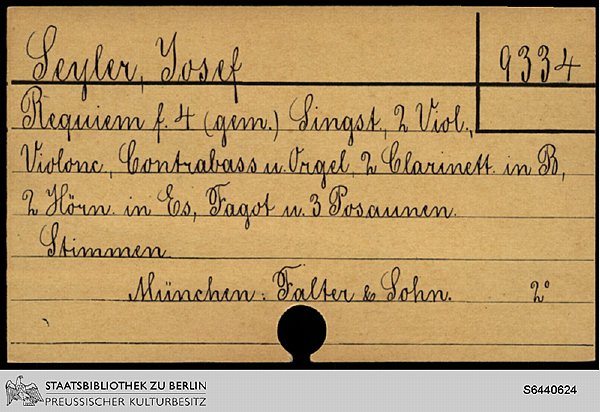 Seyler, Josef 9334
Requiem f. 4 (gem.) Singst., 2 Viol.,
Violonc., Contrabass u. Orgel, 2 Clarinett. in B,
2 Hörn. in Es, Fagot u. 3 Posaunen.
Stimmen.
München: Falter & Sohn. 2°
STAATSBIBLIOTHEK ZU BERLIN
PREUSSISCHER KULTURBESITZ
S6440624